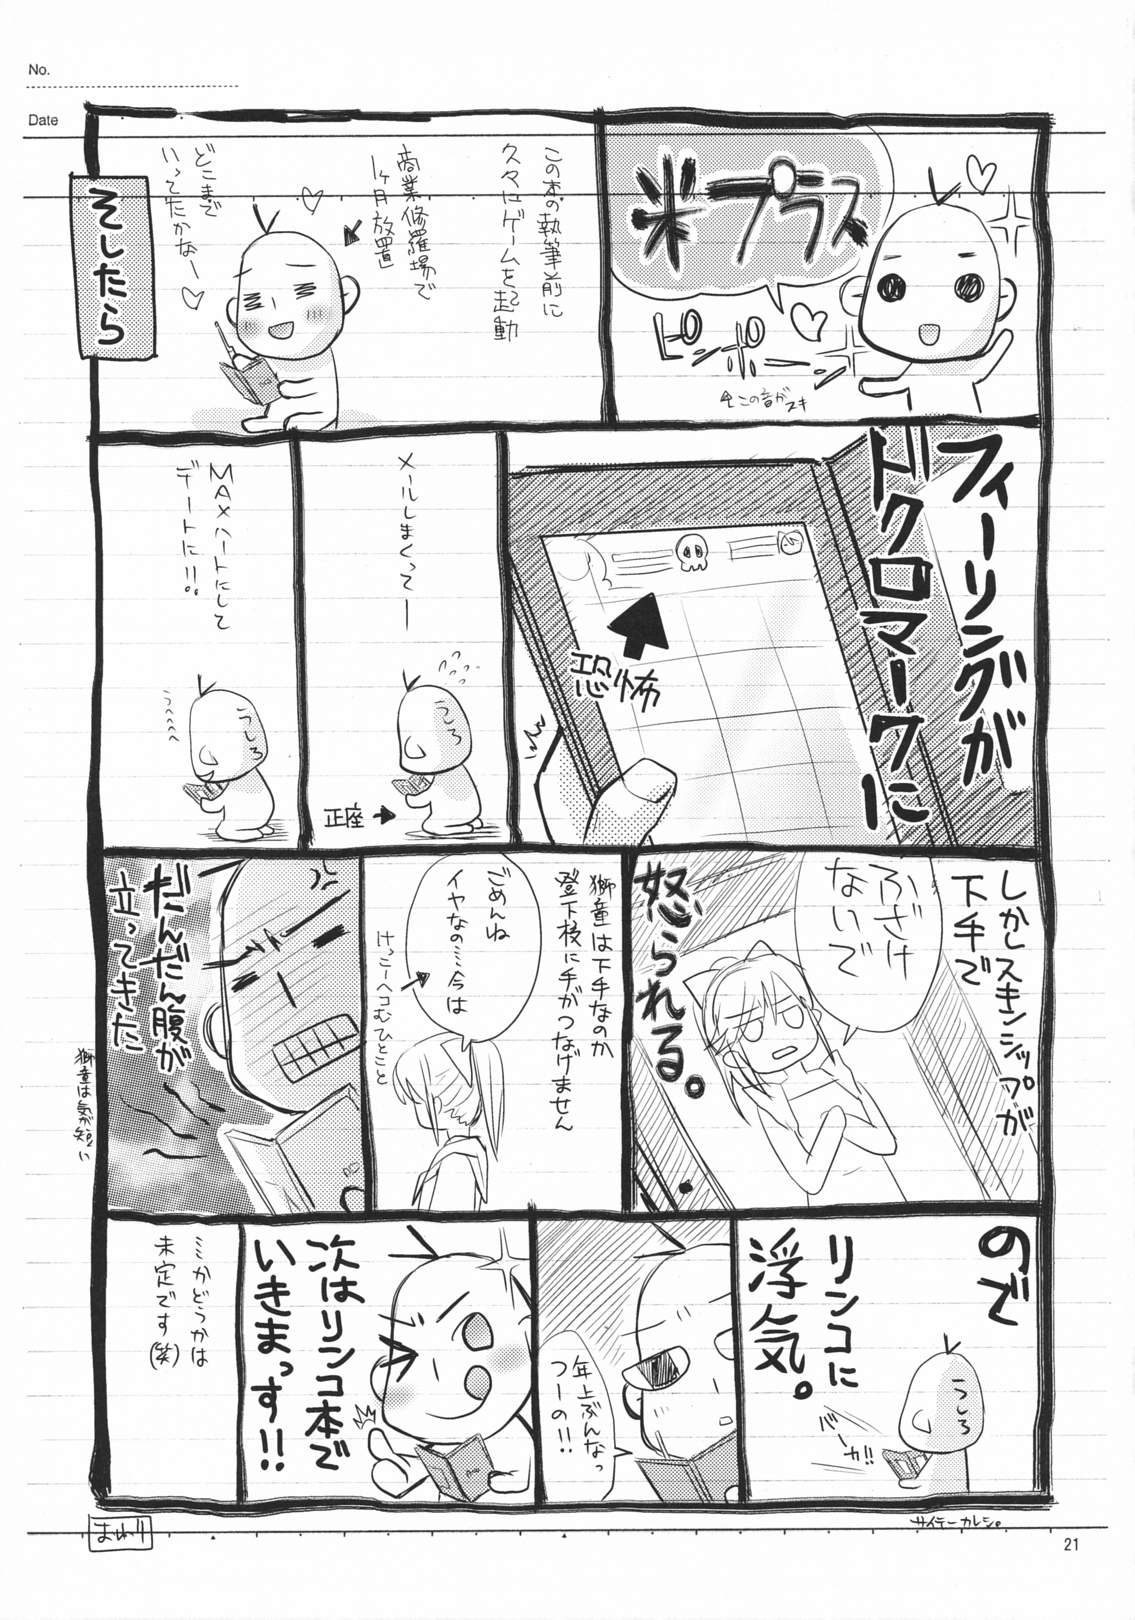 No.
Date
米プラス
ピンポーン
この音がスキ
この本の執筆前に
久々にゲームを起動
商業修羅場で
1ヶ月放置
どこまで
いってたかなー♡
そしたら
フィーリングが
ドクロマークに
恐怖
メールしまくってー
うしろ
正座
MAXハートにして
デートに!!
うしろ
しかしスキンシップが
下手で
怒られる。
ふざけ
ないで
獅童は下手なのか
登下校に手がつなげません
ごめんね
イヤなの…今は
けっこーヘコむひとこと
だんだん腹が
立ってきた
獅童は気が短い
ので
リンコに
浮気。
うしろ
バーカ!!
サイテーカレシ。
年上ぶんなっ
つーの!!
次はリンコ本で
いきまっす!!
…かどうかは
未定です(笑)
おわり
21